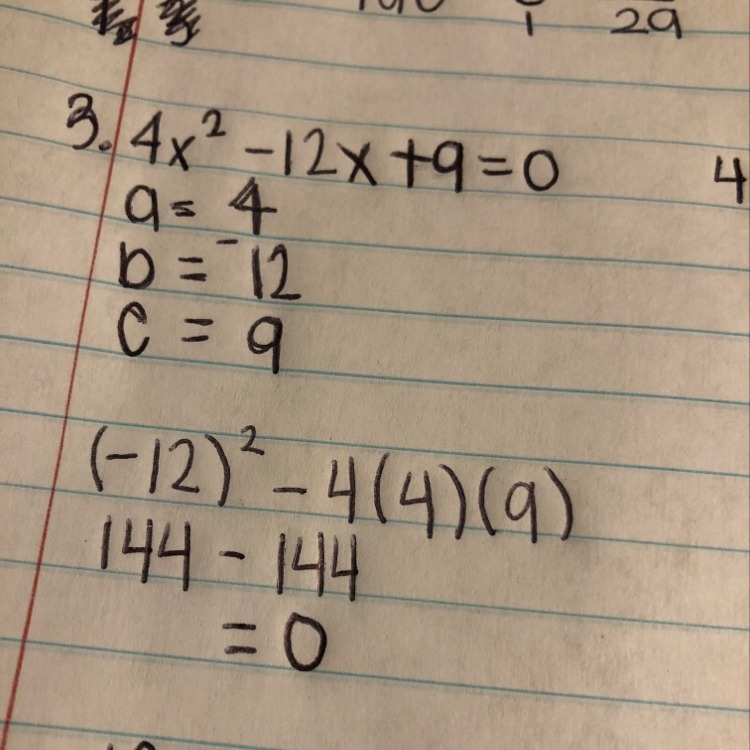 29
3. 4x² -12x +9=0
4
a= 4
b = -12
c = 9
(-12)² - 4(4)(9)
144 - 144
= 0